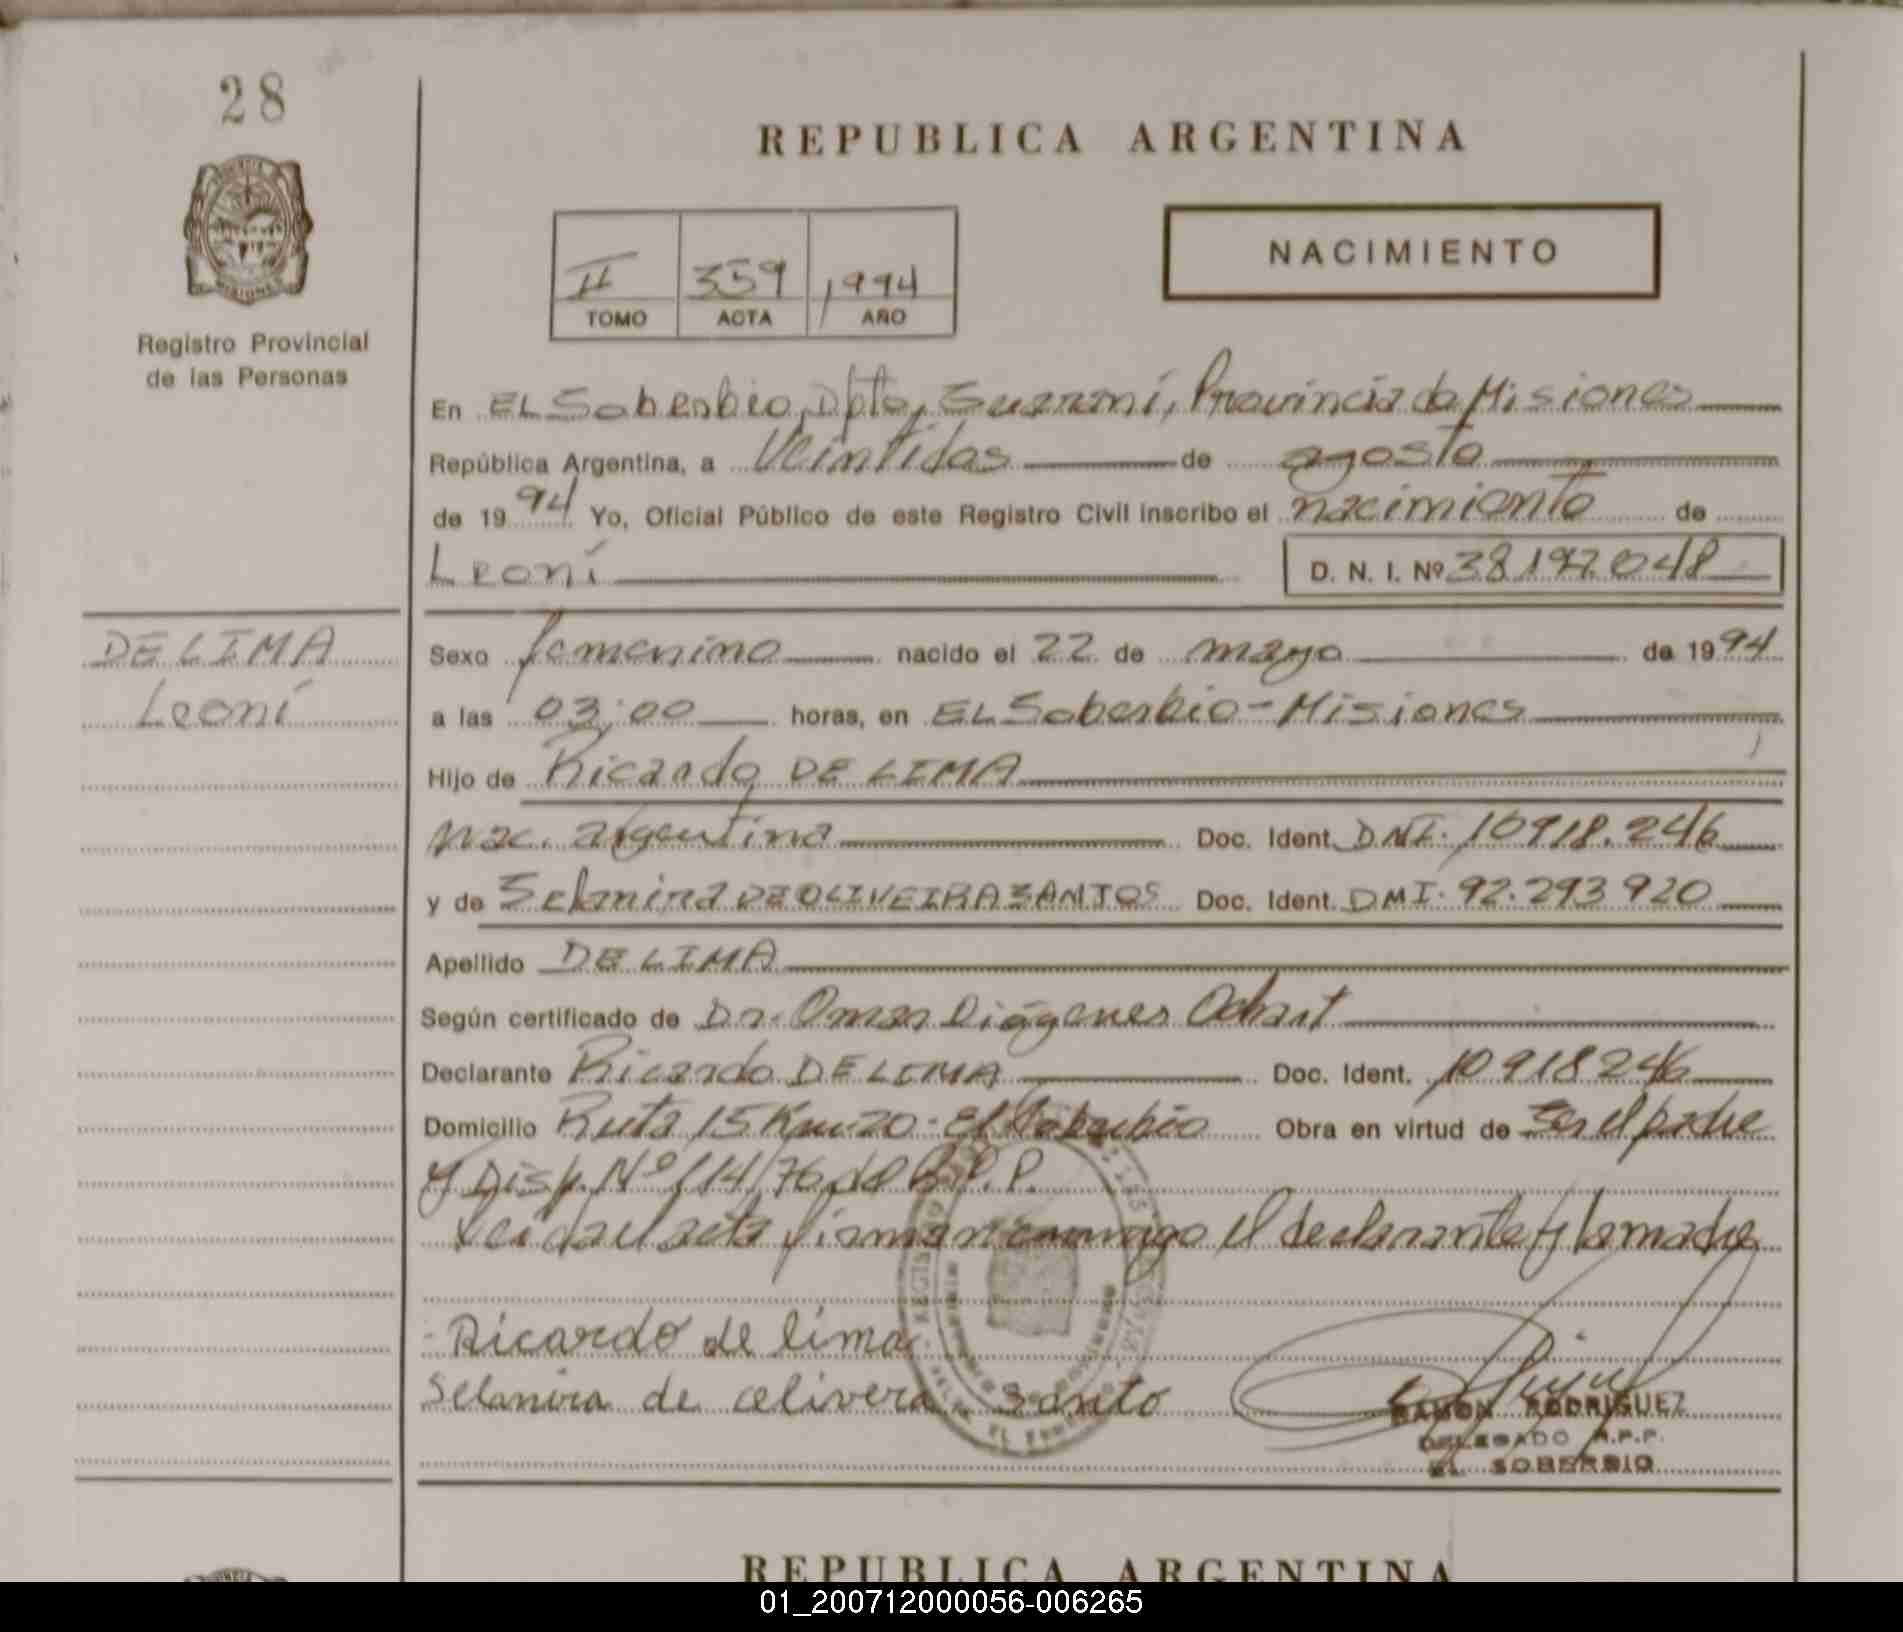 28
REPUBLICA ARGENTINA
NACIMIENTO
II 359 1994
TOMO ACTA AÑO
Registro Provincial
de las Personas
En EL Soberbio, Dpto, Guaraní, Provincia de Misiones
República Argentina, a Veintidos de agosto
de 1994 Yo, Oficial Público de este Registro Civil inscribo el nacimiento de
Leoní D. N. I. Nº 38.197.048
DE LIMA
Leoní
Sexo femenino nacido el 22 de mayo de 1994
a las 03:00 horas, en EL Soberbio - Misiones
Hijo de Ricardo DE LIMA
Nac. argentina Doc. Ident. DNI. 10918.246
y de Selanira DE OLIVEIRA SANTOS Doc. Ident. DNI. 92.293 920
Apellido DE LIMA
Según certificado de Dr. Omar Diógenes
Declarante Ricardo DE LIMA Doc. Ident. 10918246
Domicilio Ruta 15 Km 20 - El Soberbio Obra en virtud de Ser el padre
y Disp. Nº 114/76 del R.P.P.
Leida el acta firman conmigo el declarante y la madre
Ricardo de lima
Selanira de olivera Santo
RAMON RODRIGUEZ
DELEGADO R.P.P.
EL SOBERBIO
REPUBLICA ARGENTINA
01_200712000056-006265